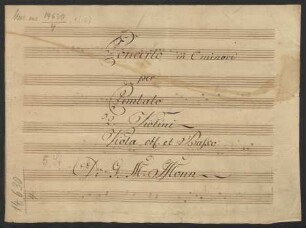 Mus. ms. 14630
9
Concerto in C minore
per
Cembalo
2 Violini
Viola
et Basso
G. M. Monn
14630